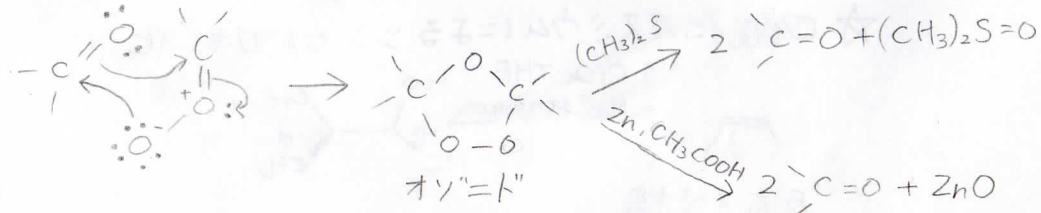 O C
C O + O C C
O O - O
オゾニド
(CH3)2S
2 C=O + (CH3)2S=O
Zn, CH3COOH
2 C=O + ZnO